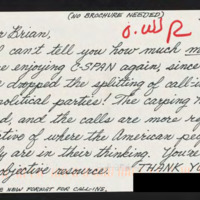 (NO BROCHURE NEEDED)
O.W.R
ear Brian,
can't tell you how much m
e enjoying C-SPAN again, since
dropped the splitting of call-i
political parties! The carping h
d, and the calls are more re
tive of where the American pe
ly are in their thinking. You're
objective resource.
THANK YO
NEW FORMAT FOR CALL-INS,